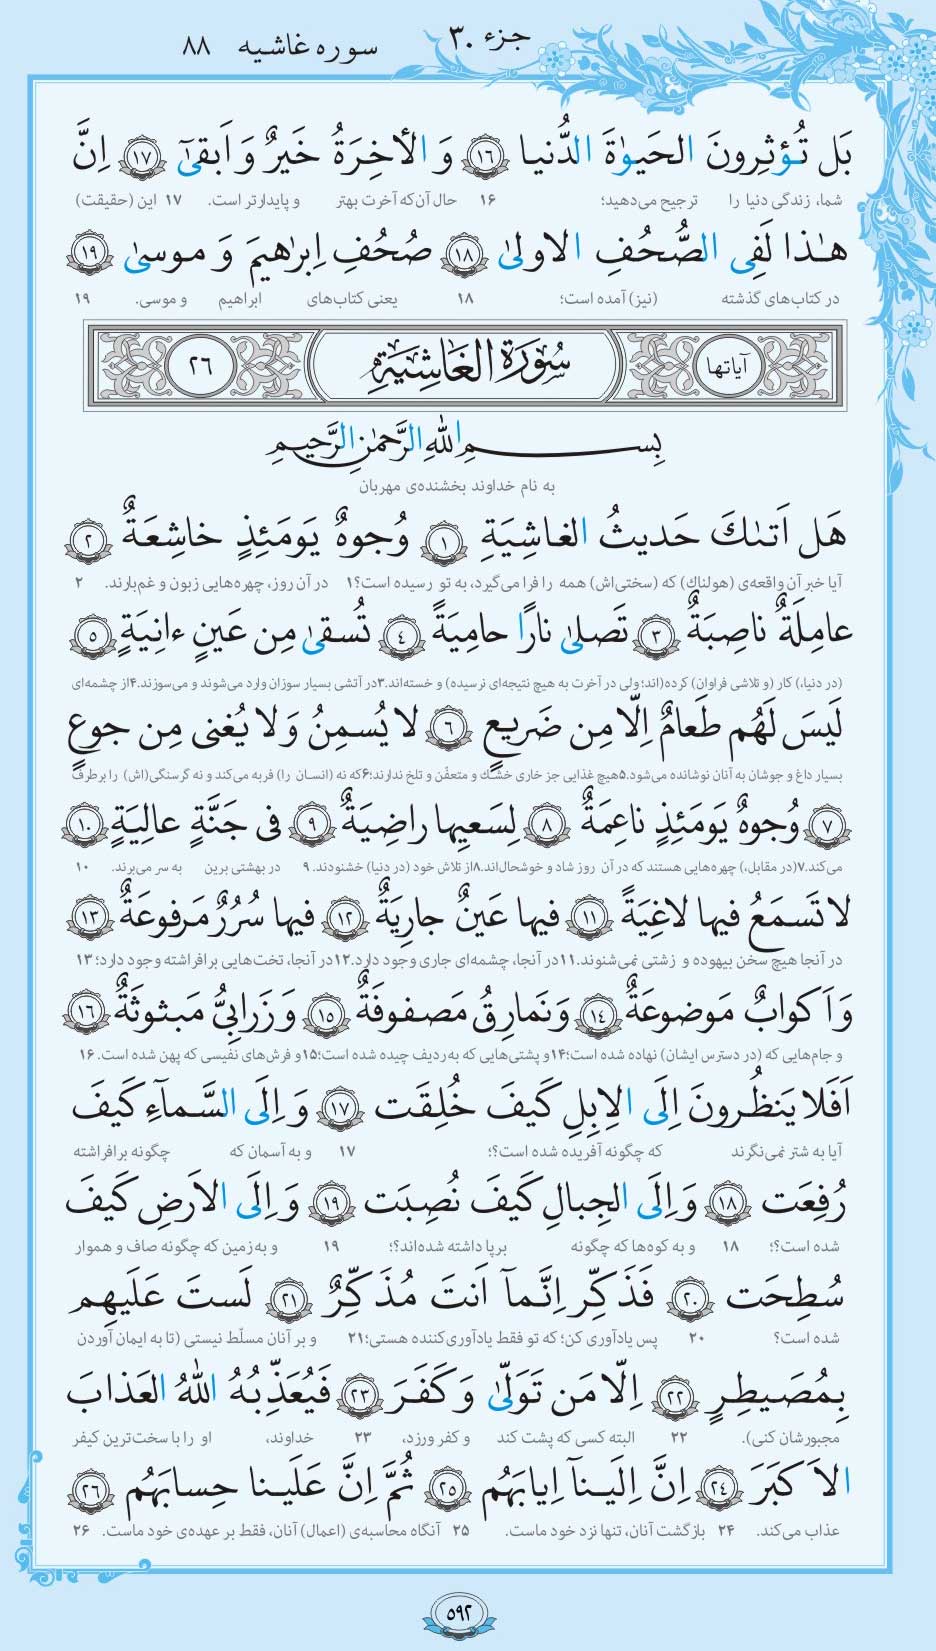 جزء ۳۰
سوره غاشیه ۸۸
بَل تُؤثِرونَ الحَيوٰةَ الدُّنيا ﴿١٦﴾ وَ الأخِرَةُ خَيرٌ وَ اَبقىٰٓ ﴿١٧﴾ اِنَّ
شما، زندگی دنیا را ترجیح می‌دهید؛ ۱۶ حال آن‌که آخرت بهتر و پایدارتر است. ۱۷ این (حقیقت)
هـٰذا لَفِى الصُّحُفِ الاولىٰ ﴿١٨﴾ صُحُفِ اِبرٰهيمَ وَ موسىٰ ﴿١٩﴾
در کتاب‌های گذشته (نیز) آمده است؛ ۱۸ یعنی کتاب‌های ابراهیم و موسی. ۱۹
آیاتها سُورَةُ الغَاشِيَةِ ٢٦
بِسـمِ اللّٰهِ الرَّحمٰنِ الرَّحيمِ
به نام خداوند بخشنده‌ی مهربان
هَل اَتىٰكَ حَديثُ الغاشِيَةِ ﴿١﴾ وُجوهٌ يَومَئِذٍ خاشِعَةٌ ﴿٢﴾
آیا خبر آن واقعه‌ی (هولناك) که (سختی‌اش) همه را فرا می‌گیرد، به تو رسیده است؟۱ در آن روز، چهره‌هایی زبون و غم‌بارند. ۲
عامِلَةٌ ناصِبَةٌ ﴿٣﴾ تَصلىٰ نارًا حامِيَةً ﴿٤﴾ تُسقىٰ مِن عَينٍ ءانِيَةٍ ﴿٥﴾
(در دنیا،) کار (و تلاشی فراوان) کرده(اند؛ ولی در آخرت به هیچ نتیجه‌ای نرسیده) و خسته‌اند.۳در آتشی بسیار سوزان وارد می‌شوند و می‌سوزند.۴از چشمه‌ای
لَيسَ لَهُم طَعامٌ اِلّا مِن ضَريعٍ ﴿٦﴾ لا يُسمِنُ وَ لا يُغنى مِن جوعٍ
بسیار داغ و جوشان به آنان نوشانده می‌شود.۵هیچ غذایی جز خاری خشك و متعفّن و تلخ ندارند؛۶که نه (انسان را) فربه می‌کند و نه گرسنگی(اش) را برطرف
﴿٧﴾ وُجوهٌ يَومَئِذٍ ناعِمَةٌ ﴿٨﴾ لِسَعيِها راضِيَةٌ ﴿٩﴾ فى جَنَّةٍ عالِيَةٍ ﴿١٠﴾
می‌کند.۷(در مقابل،) چهره‌هایی هستند که در آن روز شاد و خوشحال‌اند.۸از تلاش خود (در دنیا) خشنودند. ۹ در بهشتی برین به سر می‌برند. ۱۰
لا تَسمَعُ فيها لاغِيَةً ﴿١١﴾ فيها عَينٌ جارِيَةٌ ﴿١٢﴾ فيها سُرُرٌ مَرفوعَةٌ ﴿١٣﴾
در آنجا هیچ سخن بیهوده و زشتی نمی‌شنوند.۱۱در آنجا، چشمه‌ای جاری وجود دارد.۱۲در آنجا، تخت‌هایی برافراشته وجود دارد؛ ۱۳
وَ اَكوابٌ مَوضوعَةٌ ﴿١٤﴾ وَ نَمارِقُ مَصفوفَةٌ ﴿١٥﴾ وَ زَرابِىُّ مَبثوثَةٌ ﴿١٦﴾
و جام‌هایی که (در دسترس ایشان) نهاده شده است؛۱۴و پشتی‌هایی که به‌ردیف چیده شده است؛۱۵و فرش‌های نفیسی که پهن شده است. ۱۶
اَفَلا يَنظُرونَ اِلَى الاِبِلِ كَيفَ خُلِقَت ﴿١٧﴾ وَ اِلَى السَّمآءِ كَيفَ
آیا به شتر نمی‌نگرند که چگونه آفریده شده است؟؛ ۱۷ و به آسمان که چگونه برافراشته
رُفِعَت ﴿١٨﴾ وَ اِلَى الجِبالِ كَيفَ نُصِبَت ﴿١٩﴾ وَ اِلَى الاَرضِ كَيفَ
شده است؟؛ ۱۸ و به کوه‌ها که چگونه برپا داشته شده‌اند؟؛ ۱۹ و به‌زمین که چگونه صاف و هموار
سُطِحَت ﴿٢٠﴾ فَذَكِّر اِنَّمآ اَنتَ مُذَكِّرٌ ﴿٢١﴾ لَستَ عَلَيهِم
شده است؟ ۲۰ پس یادآوری کن؛ که تو فقط یادآوری‌کننده هستی؛۲۱ و بر آنان مسلّط نیستی (تا به ایمان آوردن
بِمُصَيطِرٍ ﴿٢٢﴾ اِلّا مَن تَوَلّىٰ وَ كَفَرَ ﴿٢٣﴾ فَيُعَذِّبُهُ اللّٰهُ العَذابَ
مجبورشان کنی). ۲۲ البته کسی که پشت کند و کفر ورزد، ۲۳ خداوند، او را با سخت‌ترین کیفر
الاَكبَرَ ﴿٢٤﴾ اِنَّ اِلَينآ اِيابَهُم ﴿٢٥﴾ ثُمَّ اِنَّ عَلَينا حِسابَهُم ﴿٢٦﴾
عذاب می‌کند. ۲۴ بازگشت آنان، تنها نزد خود ماست. ۲۵ آنگاه محاسبه‌ی (اعمال) آنان، فقط بر عهده‌ی خود ماست. ۲۶
۵۹۲